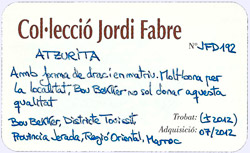 Col·lecció Jordi Fabre
ATZURITA
Nº JFD192
Amb forma de drusi en matriu. Molt bona per
la localitat, Bou Bekker no sol donar aquesta
qualitat
Trobat: (± 2012)
Bou Bekker, Districte Touissit
Adquisició: 07/2012
Província Jerada, Regió Oriental, Marroc